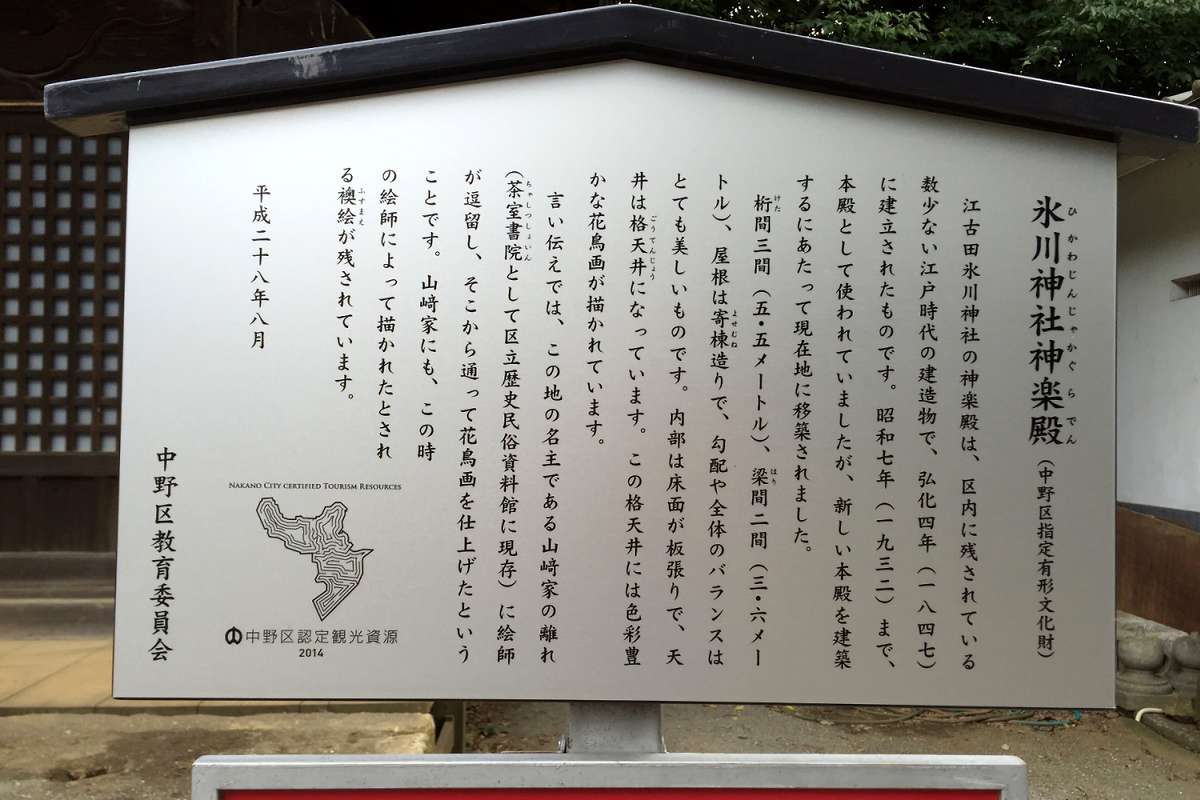 氷川神社神楽殿（中野区指定有形文化財）
江古田氷川神社の神楽殿は、区内に残されている
数少ない江戸時代の建造物で、弘化四年（一八四七）
に建立されたものです。昭和七年（一九三二）まで、
本殿として使われていましたが、新しい本殿を建築
するにあたって現在地に移築されました。
桁間三間（五・五メートル）、梁間二間（三・六メー
トル）、屋根は寄棟造りで、勾配や全体のバランスは
とても美しいものです。内部は床面が板張りで、天
井は格天井になっています。この格天井には色彩豊
かな花鳥画が描かれています。
言い伝えでは、この地の名主である山﨑家の離れ
（茶室書院として区立歴史民俗資料館に現存）に絵師
が逗留し、そこから通って花鳥画を仕上げたという
ことです。山﨑家にも、この時
の絵師によって描かれたとされ
る襖絵が残されています。
平成二十八年八月
中野区教育委員会
NAKANO CITY CERTIFIED TOURISM RESOURCES
中野区認定観光資源
2014